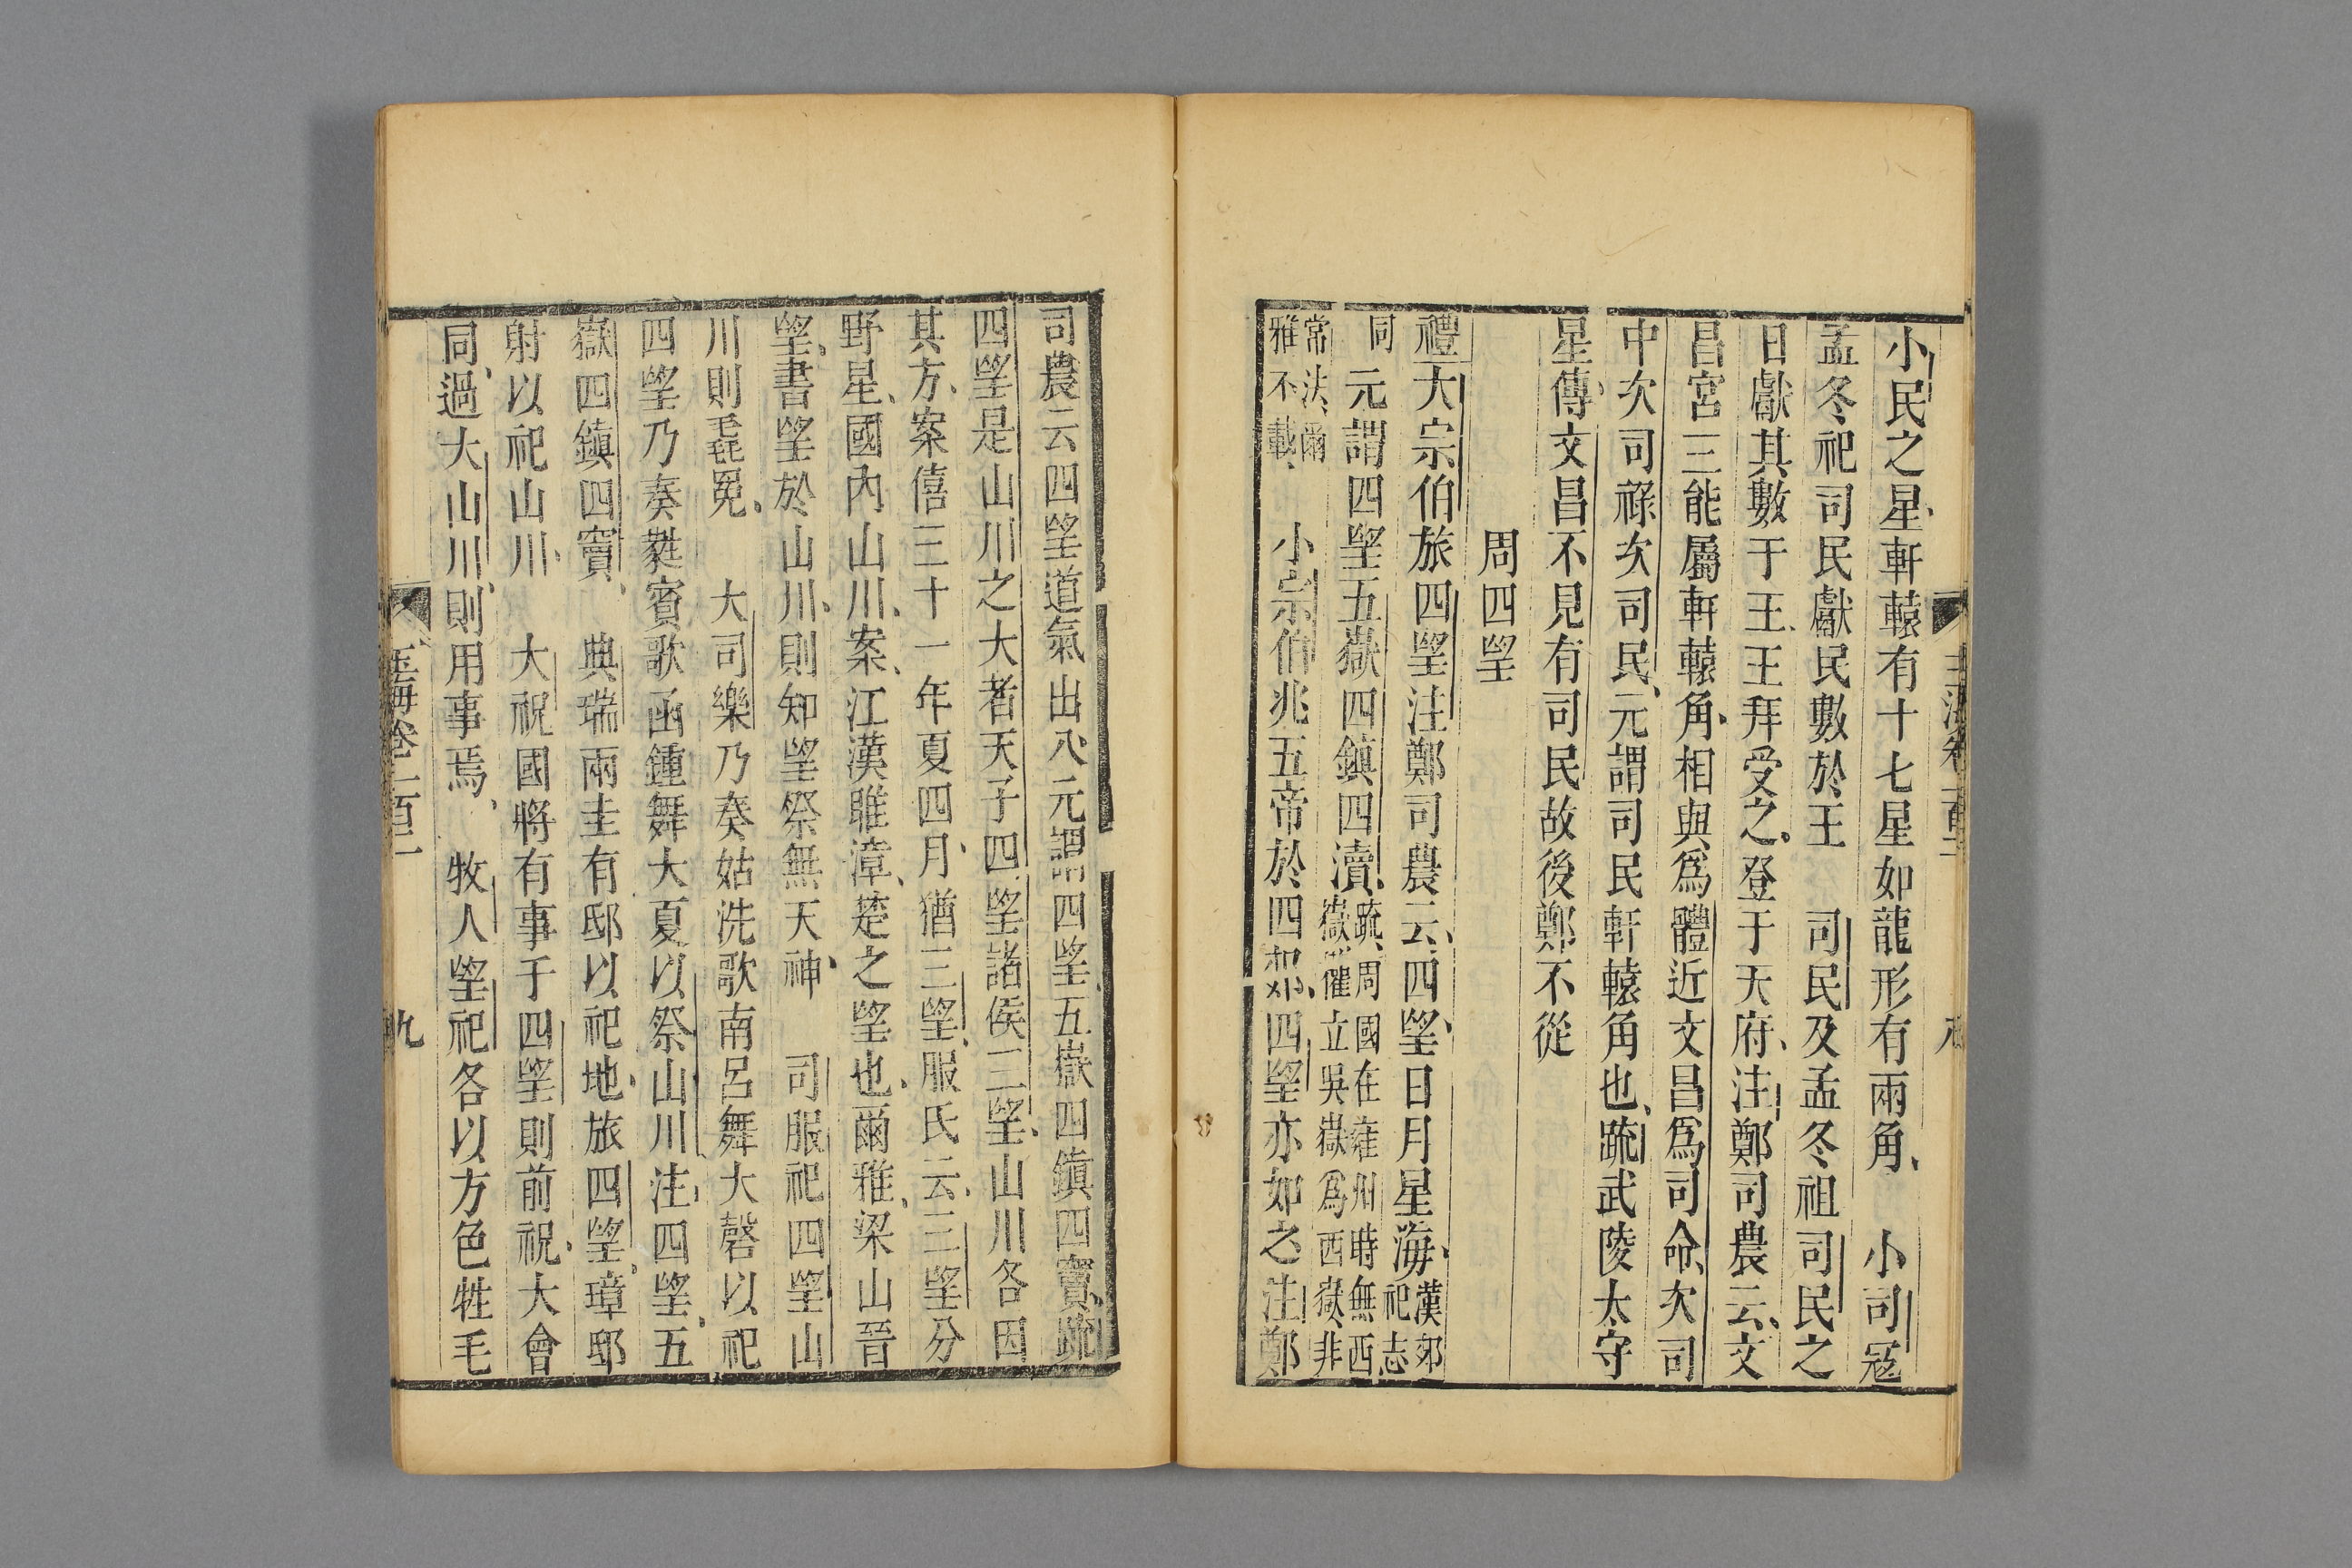 小民之星軒轅有十七星如龍形有兩角 小司寇
孟冬祀司民獻民數於王 司民及孟冬祖司民之
日獻其數于王王拜受之登于天府注鄭司農云文
昌宮三能屬軒轅角相與爲體近文昌爲司命次司
中次司祿次司民元謂司民軒轅角也疏武陵太守
星傳文昌不見有司民故後鄭不從
周四望
禮大宗伯旅四望注鄭司農云四望日月星海漢郊祀志
同元謂四望五嶽四鎮四瀆疏周國在雍州時無西嶽權立吳嶽爲西嶽非
常法爾雅不載 小宗伯兆五帝於四郊四望亦如之注鄭
玉海卷一百二
司農云四望道氣出入元謂四望五嶽四鎮四竇疏
四望是山川之大者天子四望諸侯三望山川各因
其方案僖三十一年夏四月猶三望服氏云三望分
野星國內山川案江漢雎漳楚之望也爾雅梁山晉
望書望於山川則知望祭無天神 司服祀四望山
川則毳冕 大司樂乃奏姑洗歌南呂舞大磬以祀
四望乃奏蕤賓歌函鍾舞大夏以祭山川注四望五
嶽四鎮四竇 典瑞兩圭有邸以祀地旅四望璋邸
射以祀山川 大祝國將有事于四望則前祝大會
同過大山川則用事焉 牧人望祀各以方色牲毛
玉海卷一百二 九